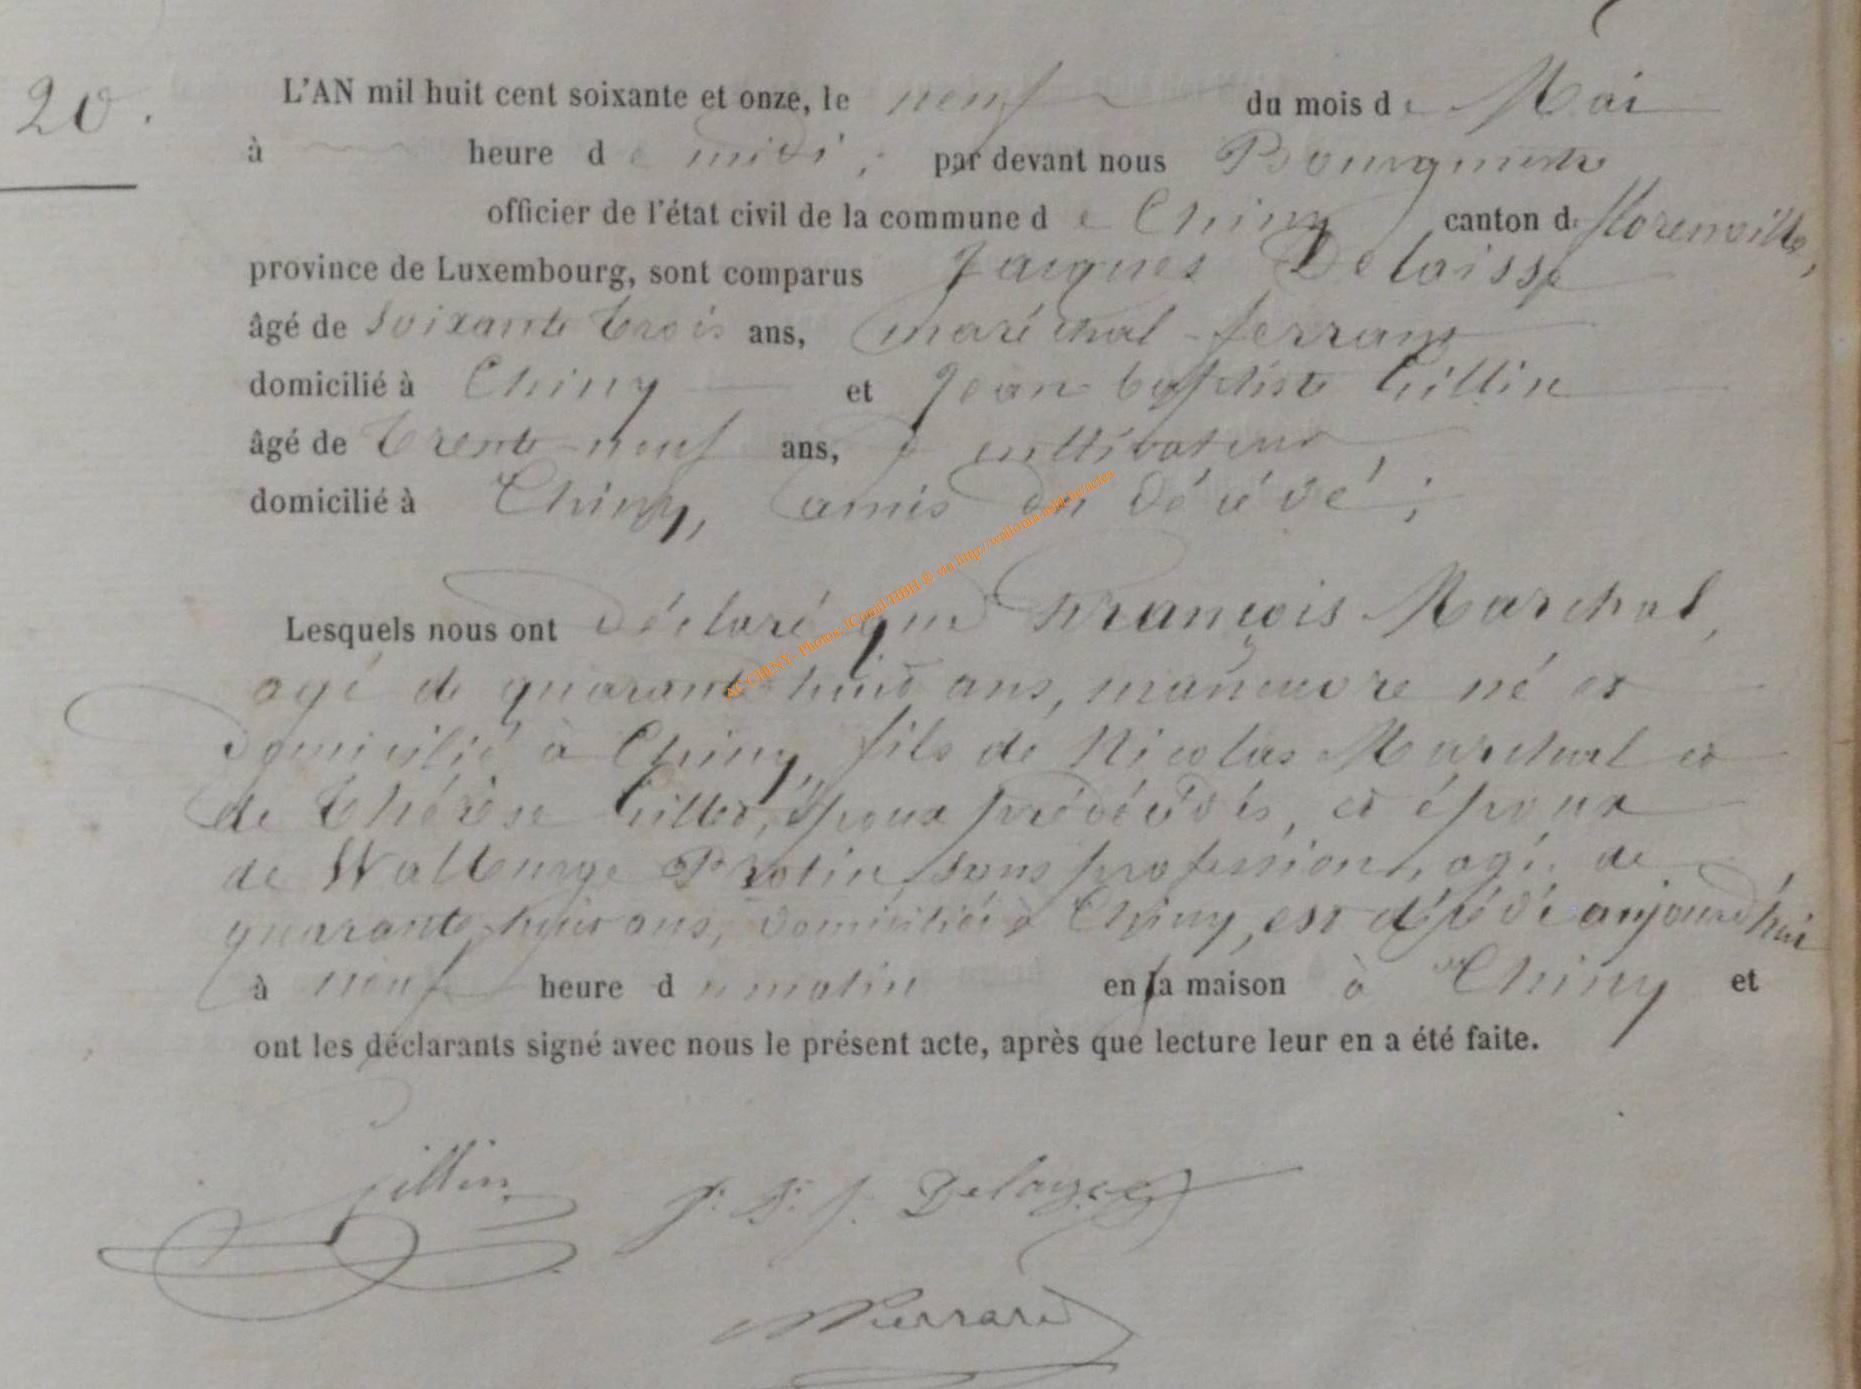 20.
L'AN mil huit cent soixante et onze, le neuf du mois de Mai
à heure de midi, par devant nous Bourgmestre
officier de l'état civil de la commune de Chiny canton de florenville,
province de Luxembourg, sont comparus Jacques Delaisse
âgé de soixante trois ans, maréchal-ferrant
domicilié à Chiny et Jean baptiste Gillin
âgé de trente-neuf ans, cultivateur,
domicilié à Chiny, amis du décédé;
Lesquels nous ont déclaré que François Marchal,
agé de quarante-huit ans, manœuvre né et
domicilié à Chiny, fils de Nicolas Marchal et
de Thérèse Gilles, époux prédécédés, et époux
de Walburge Protin, sans profession, agée de
quarante-huit ans, domiciliée à Chiny, est décédé aujourd'hui
à neuf heure du matin en sa maison à Chiny et
ont les déclarants signé avec nous le présent acte, après que lecture leur en a été faite.
Gillin J. Delaysse
Pierrard